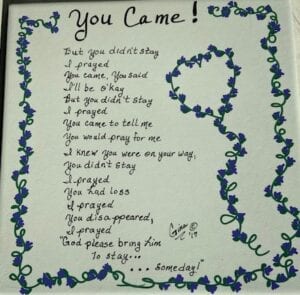 You Came!
But you didn't stay
I prayed
You came, You said
I'll be o'kay
But you didn't stay
I prayed
You came to tell me
You would pray for me
I knew you were on your way,
You didn't stay
I prayed
You had loss
I prayed
You disappeared,
I prayed
"God please bring him
To stay...
... someday!"
© '19